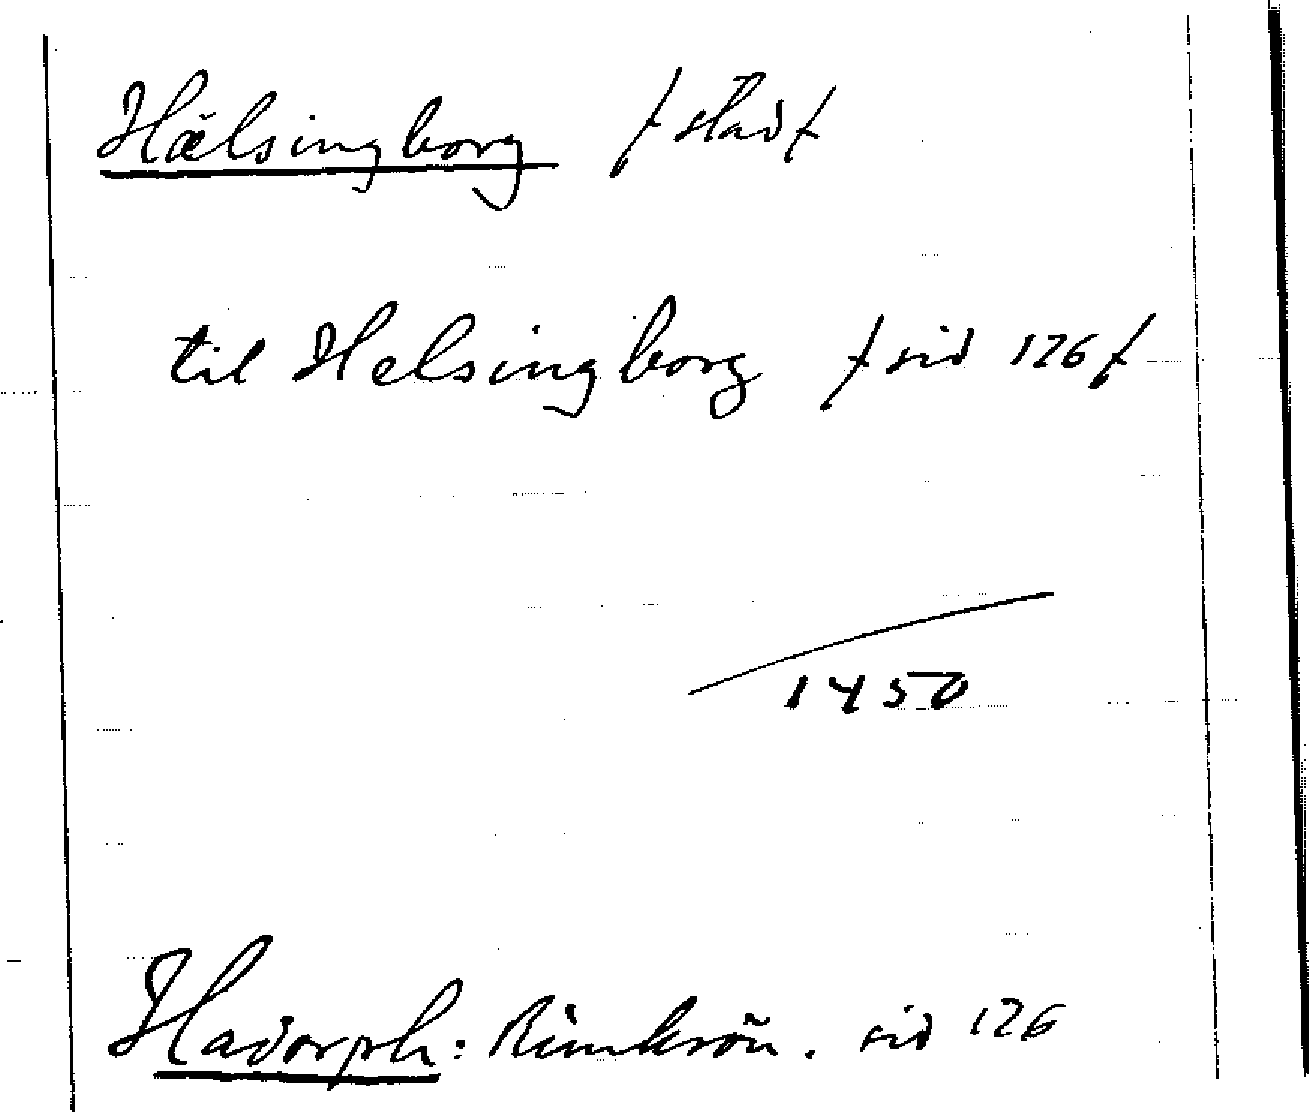 Hälsingborg /stad/
til Helsingborg /sid 126/
1450
Hadorph: Rimkrön. sid 126